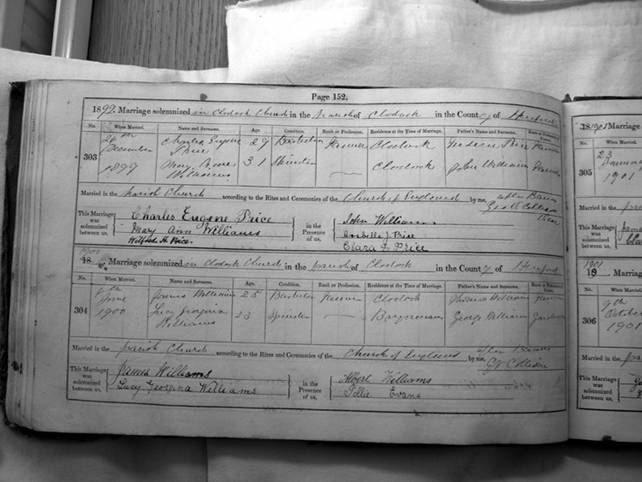 Page 152.
1899. Marriage solemnized in Clodock Church in the parish of Clodock in the County of Hereford
No. When Married. Name and Surname. Age Condition. Rank or Profession. Residence at the Time of Marriage. Father's Name and Surname. Rank or Profession
303 December 1899 Charles Eugene Price 29 Bachelor Farmer Clodock Price Farmer
Mary Anne Williams 31 Spinster — Clodock John Williams Farmer
Married in the parish Church according to the Rites and Ceremonies of the Church of England by me, after Banns
This Marriage was solemnized between us, Charles Eugene Price
Mary Ann Williams
Wilfred H. Price.
in the Presence of us, John Williams
Isabelle J. Price
Clara F. Price
18 Marriage solemnized in Clodock Church in the parish of Clodock in the County of Hereford
No. When Married. Name and Surname. Age Condition. Rank or Profession. Residence at the Time of Marriage. Father's Name and Surname. Rank or Profession
304 June 1900 James Williams 25 Bachelor Farmer Clodock Thomas Williams
Lucy Georgina Williams 23 Spinster — George Williams
Married in the parish Church according to the Rites and Ceremonies of the Church of England by me, after Banns
This Marriage was solemnized between us, James Williams
Lucy Georgina Williams
in the Presence of us, Albert Williams
Pollie Evans
Marriage
No. When Married.
305 23 1901
Married in the
This Marriage was solemnized between us,
1901
19 Marriage
No. When Married.
306 9th October 1901
Married in the
This Marriage was solemnized between us,